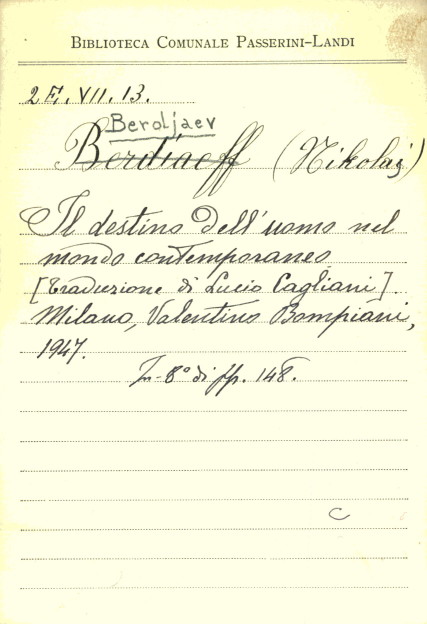 BIBLIOTECA COMUNALE PASSERINI-LANDI
2 F. VII. 13.
Berdjaev
Berdiaeff (Nikolaj)
Il destino dell'uomo nel
mondo contemporaneo
[Traduzione di Lucio Cagliani].
Milano, Valentino Bompiani,
1947.
In-8° di pp. 148.
C